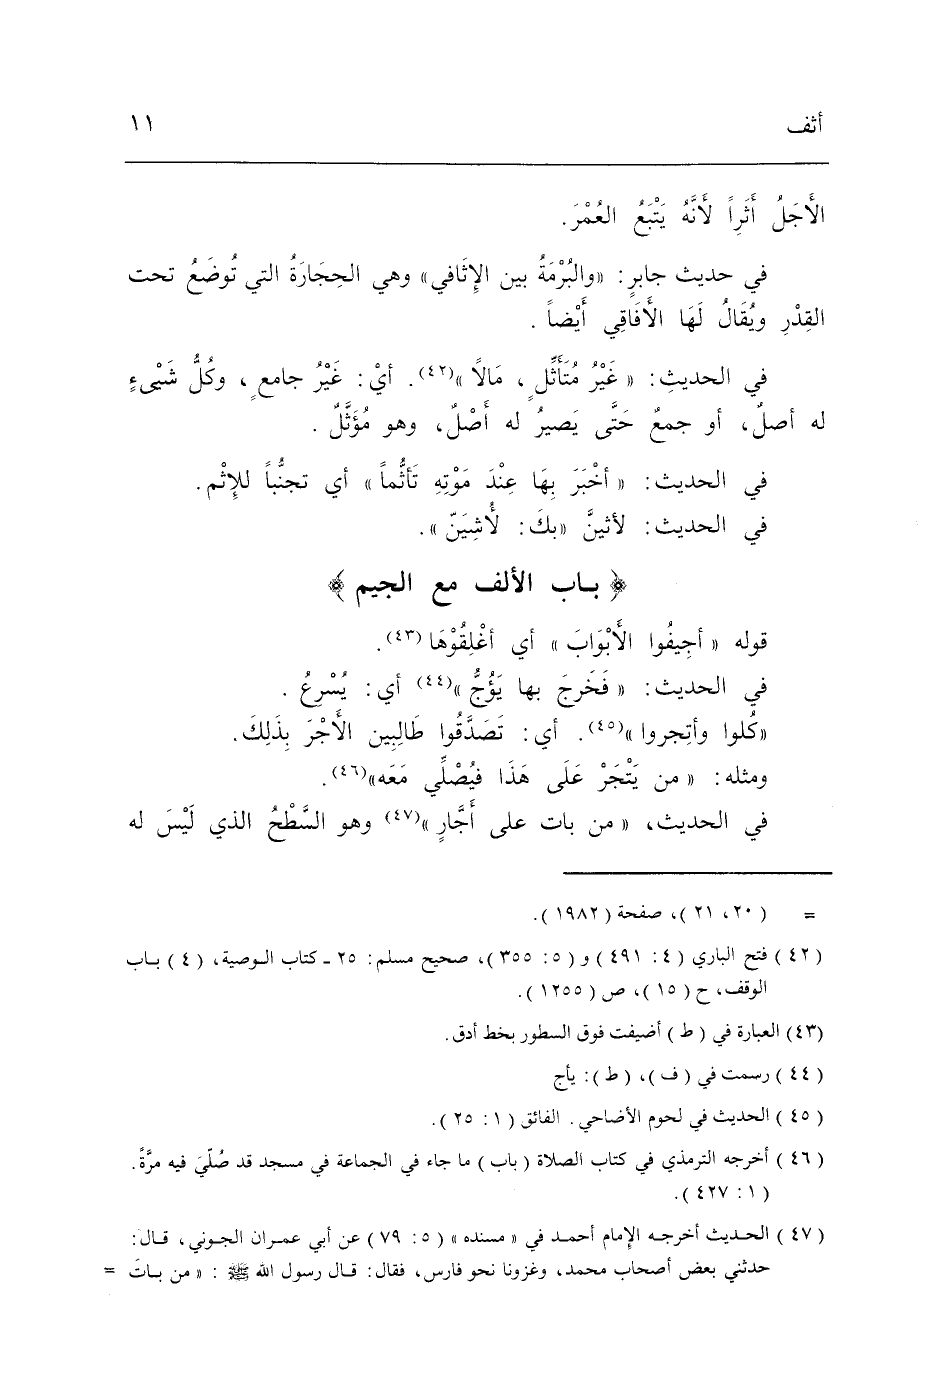 أثف ١١
الأَجَلُ أَثَراً لأَنَّهُ يَتْبَعُ العُمْرَ.
في حديث جابرٍ: «والبُرْمَةُ بين الإِثَافي» وهي الحِجَارَةُ التي تُوضَعُ تحت
القِدْرِ ويُقَالُ لَهَا الأَفَاقِي أَيْضاً .
في الحديثِ: « غَيْرُ مُتَأَثِّلٍ ، مَالاً »(٤٢). أيْ: غَيْرُ جامعٍ ، وكُلُّ شَيْىءٍ
له أصلٌ، أو جمعٌ حَتَّى يَصيرُ له أَصْلٌ، وهو مُؤَثَّلٌ .
في الحديث: « أخْبَرَ بِهَا عِنْدَ مَوْتِهِ تَأثُّماً » أي تجنُّباً للإِثْم.
في الحديث: لأثينَّ «بكَ: لُأشِيَنّ ».
﴿ باب الألف مع الجيم ﴾
قوله « أجِيفُوا الأَبْوَابَ » أي أغْلِقُوْهَا (٤٣).
في الحديث: « فَخَرجَ بها يَؤُجُّ »(٤٤) أي: يُسْرِعُ .
«كُلوا وأتِجروا »(٤٥). أي: تَصَدَّقُوا طَالِبِين الأَجْرَ بِذَلِكَ.
ومثله: « من يَتْجَرْ عَلَى هَذَا فيُصْلِّي مَعَه»(٤٦).
في الحديث، « من بات على أَجَّارٍ »(٤٧) وهو السَّطْحُ الذي لَيْسَ له
= (٢٠، ٢١)، صفحة (١٩٨٢).
(٤٢) فتح الباري (٤: ٤٩١) و (٥: ٣٥٥)، صحيح مسلم: ٢٥ ـ كتاب الوصية، (٤) باب
الوقف، ح (١٥)، ص (١٢٥٥).
(٤٣) العبارة في (ط) أضيفت فوق السطور بخط أدق.
(٤٤) رسمت في (ف)، (ط): يأج
(٤٥) الحديث في لحوم الأضاحي. الفائق (١: ٢٥).
(٤٦) أخرجه الترمذي في كتاب الصلاة (باب) ما جاء في الجماعة في مسجد قد صُلّيَ فيه مرَّةً.
(١: ٤٢٧).
(٤٧) الحديث أخرجه الإمام أحمد في « مسنده » (٥: ٧٩) عن أبي عمران الجوني، قال:
حدثني بعض أصحاب محمد، وغزونا نحو فارس، فقال: قال رسول الله ﷺ : « من باتَ =